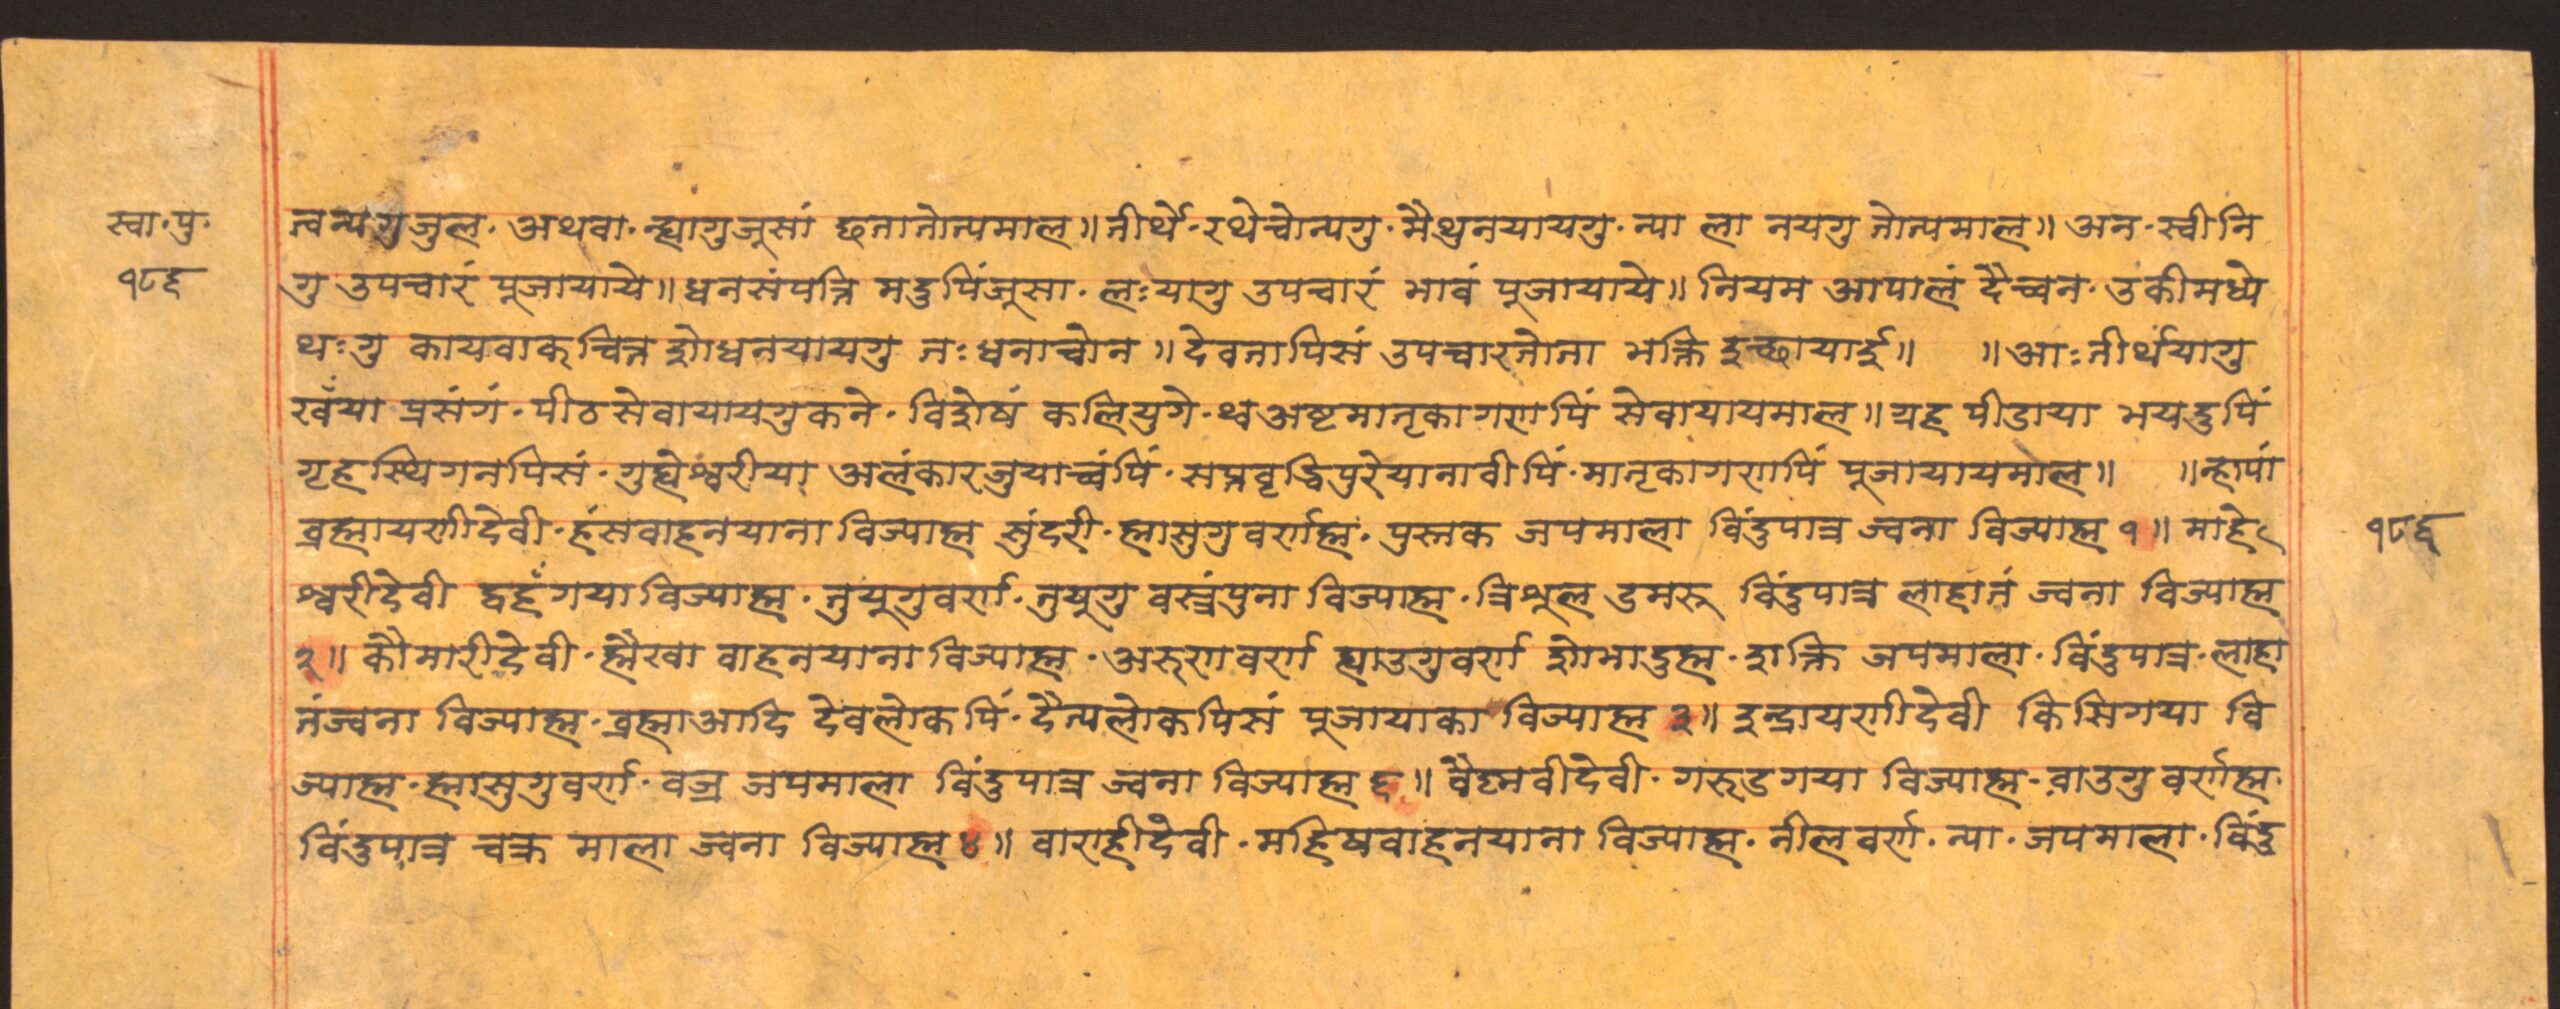 स्वा॰पु॰
१८६
त्वन्यगुजुल॰ अथवा॰ न्ह्यागुजूसां छतातोत्यमाल॥ तीर्थे॰रथेचोन्यगु॰मैथुनयायगु॰न्या ला नयगु तोत्यमाल॥ अन॰स्वीनि
गु उपचारं पूजायाये॥ धनसंपत्ति मदुपिंजूसा॰ लःयागु उपचारं भावं पूजायाये॥ नियम आपालं दैच्वन॰उकीमध्ये
थःगु कायवाक्चित्त शोधनयायगु तःधनाचोन॥ देवतापिसं उपचारतोता भक्ति इच्छायाई॥ ॥आःतीर्थयागु
खँया प्रसंगं॰पीठसेवायायगुकने॰विशेषं कलियुगे॰थ्वअष्टमातृकागणपिं सेवायायमाल॥ ग्रह पीडाया भयदुपिं
गृहस्थिगनपिसं॰गुह्येश्वरीया अलंकारजुयाच्वंपिं॰सप्तवृद्धिपुरेयानावीपिं॰मातृकागणपिं पूजायायमाल॥ ॥न्हापां
ब्रह्मायणीदेवी॰हंसवाहनयाना विज्याह्म सुंदरी॰ह्मासुगुवर्णह्म॰पुस्तक जपमाला विंदुपात्र ज्वना विज्याह्म १॥ माहे
श्वरीदेवी द्वहँगया विज्याह्म॰तुयूगुवर्ण॰तुयूगु वस्त्रंपुना विज्याह्म॰त्रिशूल डमरू विंदुपात्र लाहातं ज्वना विज्याह्म
२॥ कौमारीदेवी॰ह्मैखा वाहनयाना विज्याह्म॰अरूणवर्ण ह्याउगुवर्ण शोभादुह्म॰शक्ति जपमाला॰विंदुपात्र॰लाहा
तंज्वना विज्याह्म॰ब्रह्माआदि देवलोकपिं॰दैत्यलोकपिसं पूजायाका विज्याह्म ३॥ इन्द्रायणीदेवी किसिगया वि
ज्याह्म॰ह्मासुगुवर्ण॰वज्र जपमाला विंदुपात्र ज्वना विज्याह्म ६॥ वैष्नवीदेवी॰गरूडगया विज्याह्म॰वाउगुवर्णह्म॰
विंदुपात्र चक्र माला ज्वना विज्याह्म ४॥ वाराहीदेवी॰महिषवाहनयाना विज्याह्म॰नीलवर्ण॰न्या॰जपमाला॰विंदु
१८६